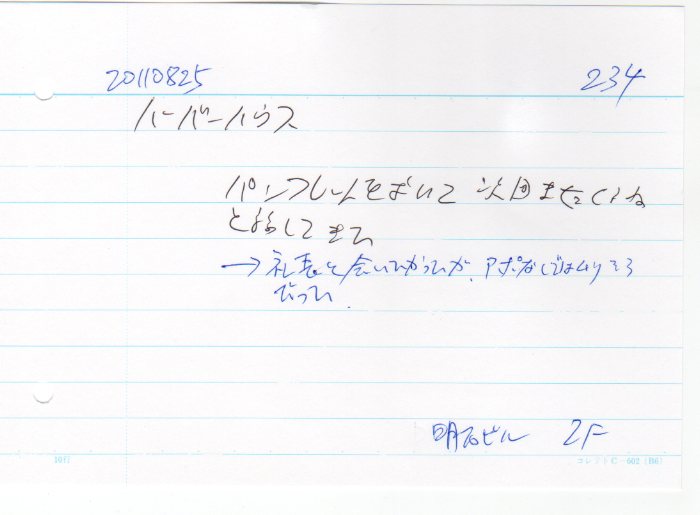 20110825
234
ハーバーハウス
パンフレットをおいて 次回また来るね
と話してきた
→ 社長と会いたかったが、アポなしではムリそう
だった
明石ビル 2F
10行
コレクト C-602 (B6)